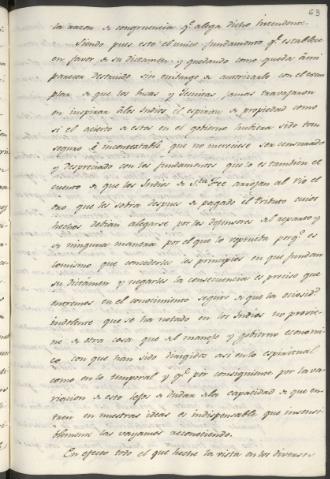 63
la razon de congruencia q.e alega dicho Intendente.
Siendo pues esto el unico fundamento q.e establece
en favor de su dictamen y quedando como queda á mi
parecer destruido sin embargo de autorizarlo con el exem
plar de que los Incas y Jesuitas jamas trabajaron
en inspirar á los Indios el espiritu de propiedad como
si el acierto de estos en el gobierno hubiera sido tan
seguro é incontestable que no mereciese ser censurado
y despreciado con los fundamentos que lo es tambien el
cuento de que los Indios de S.ta Fee arrojan al rio el
oro que les sobra despues de pagado el tributo cuios
hechos debian alegarse por los defensores del reparto y
de ninguna manera por el que lo reprueba porq.e es
lo mismo que concederles los principios en que fundan
su dictamen y negarles la consecuencia es preciso que
entremos en el conocimiento seguro de que la ociosidad
indolente que se ha notado en los Indios no provie
ne de otra cosa que del manejo y gobierno economi
co con que han sido dirigidos asi en lo espiritual
como en lo temporal y q.e por consiguiente por la va
riacion de este lejos de dudar de la capacidad de que en
tren en nuestras ideas es indispensable que insensi
blemente las vayamos reconociendo.
En efecto todo el que heche la vista en los diversos